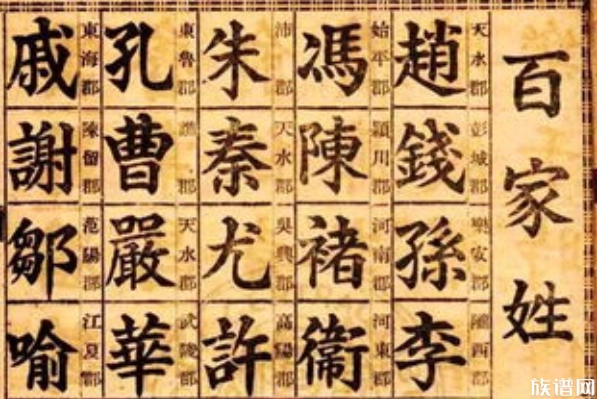 百家姓
天水郡 彭城郡 樂安郡 隴西郡
趙錢孫李
始平郡 潁川郡 河南郡 河東郡
馮陳褚衛
沛郡 天水郡 吳興郡 高陽郡
朱秦尤許
東魯郡 譙郡 天水郡 武陵郡
孔曹嚴華
東海郡 陳留郡 范陽郡 江夏郡
戚謝鄒喻
族谱网